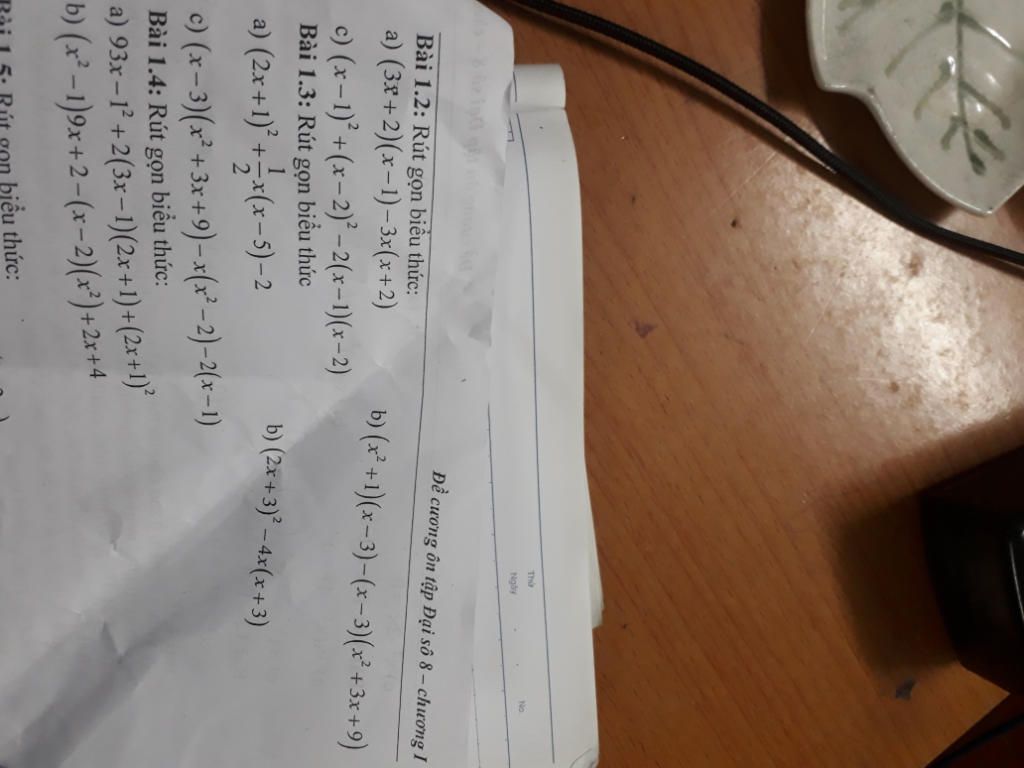 Thứ
Ngày No.
Đề cương ôn tập Đại số 8 – chương I
Bài 1.2: Rút gọn biểu thức:
a) (3x + 2)(x − 1) − 3x(x + 2) b) (x² + 1)(x − 3) − (x − 3)(x² + 3x + 9)
c) (x − 1)² + (x − 2)² − 2(x − 1)(x − 2)
Bài 1.3: Rút gọn biểu thức
a) (2x + 1)² + 1/2 x(x − 5) − 2 b) (2x + 3)² − 4x(x + 3)
c) (x − 3)(x² + 3x + 9) − x(x² − 2) − 2(x − 1)
Bài 1.4: Rút gọn biểu thức:
a) 93x − 1² + 2(3x − 1)(2x + 1) + (2x + 1)²
b) (x² − 1)9x + 2 − (x − 2)(x²) + 2x + 4
Bài 1.5: Rút gọn biểu thức: